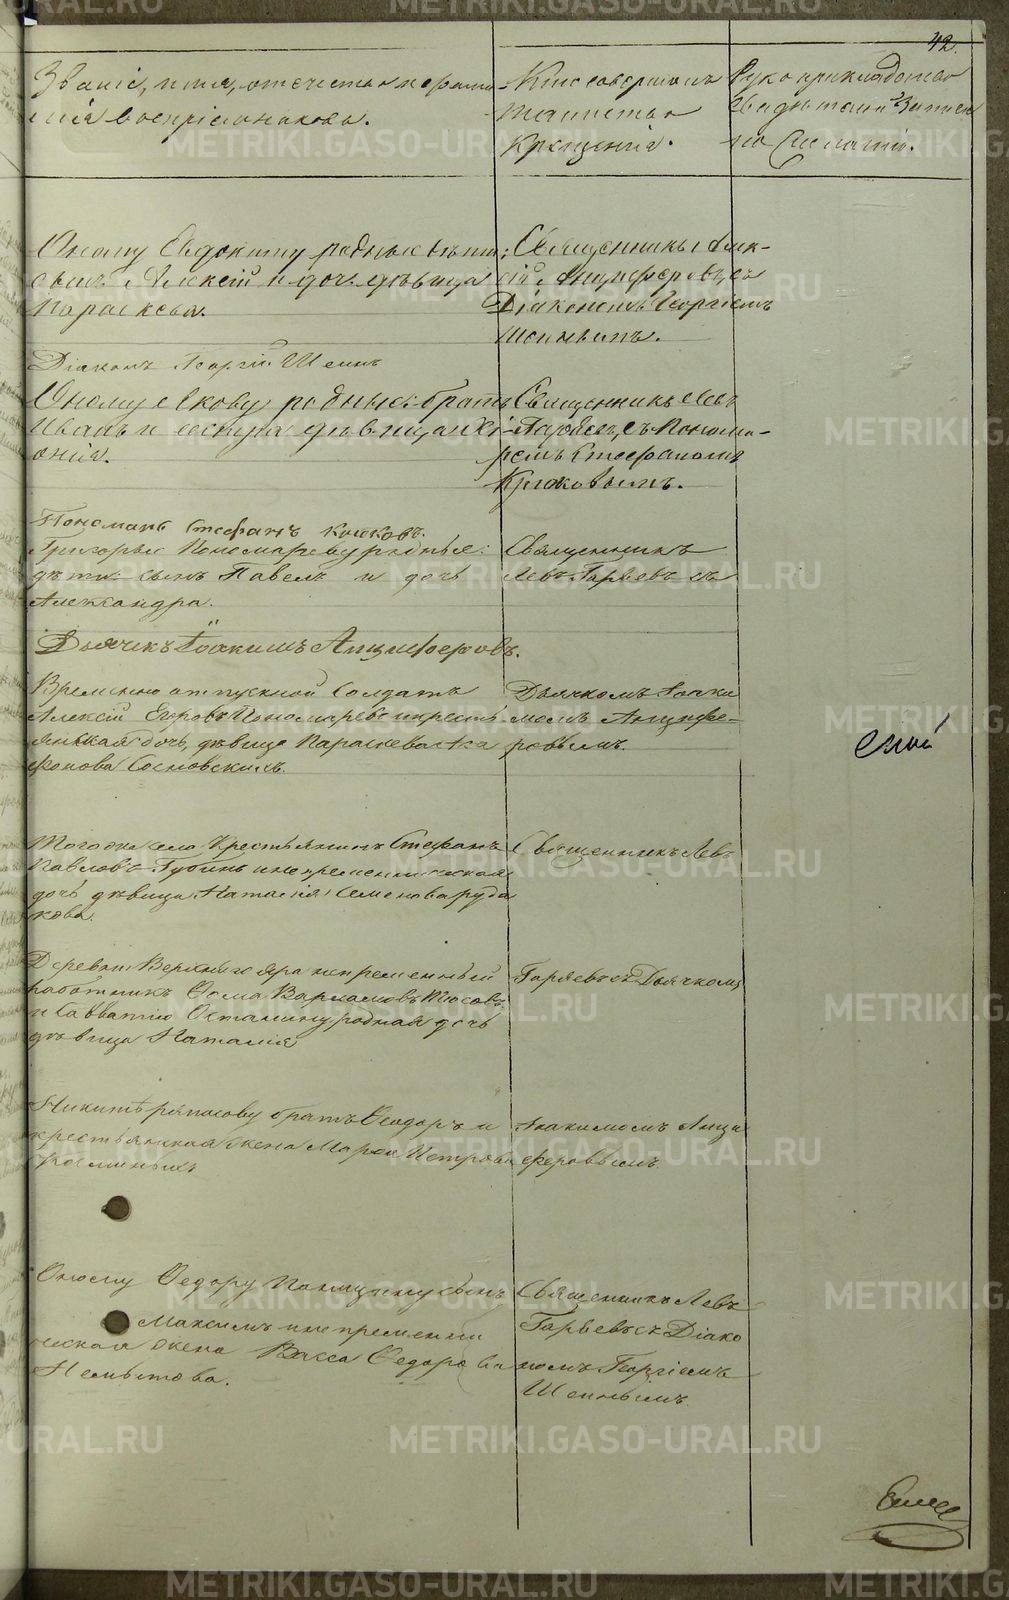 42.
Званіе, имя, отечество и фами-
лія воспріемниковъ.
Кто совершалъ
таинство
крещенія.
Рукоприкладство
свидѣтелей записи
по желанію.
Оному Евдокиму родные дѣти:
сынъ Алексій и дочь дѣвица
Параскева.
Священникъ Алек-
сій Анциферовъ съ
Діакономъ Георгіемъ
Шеинымъ.
Діаконъ Георгій Шеинъ
Оному Якову родные: братъ
Иванъ и сестра дѣвица
онія.
Священникъ Левъ
Гаряевъ, съ Понома-
ремъ Стефаномъ
Крюковымъ.
Пономарь Стефанъ Крюковъ.
Григорью Пономареву родные:
дѣти сынъ Павелъ и дочь
Александра.
Священникъ
Левъ Гаряевъ съ
Дьячекъ Іоакимъ Анциферовъ.
Временно отпускной Солдатъ
Алексій Егоровъ Пономаревъ и кресть
янская дочь, дѣвица Параскева Ага
фонова Сосновскихъ.
Дьячкомъ Іоаки
момъ Анцифе-
ровымъ.
Того же села Крестьянинъ Стефанъ
Павловъ Губинъ и непременническая
дочь дѣвица Наталія Семенова Руда
кова.
Священникъ Левъ
Деревни Верхняго яра непременный
работникъ Ѳома Варламовъ
и Савватію Останину родная дочь
дѣвица Наталія
Гаряевъ съ Дьячкомъ
Никитѣ братъ Ѳеодоръ и
крестьянская жена Марѳа Петрова
Іоакимомъ Анци
феровымъ.
Оному Ѳедору сынъ
Максимъ и непременни
ческая жена Васса Ѳедорова
Священникъ Левъ
Гаряевъ съ Діако
номъ Георгіемъ
Шеинымъ.
METRIKI.GASO-URAL.RU